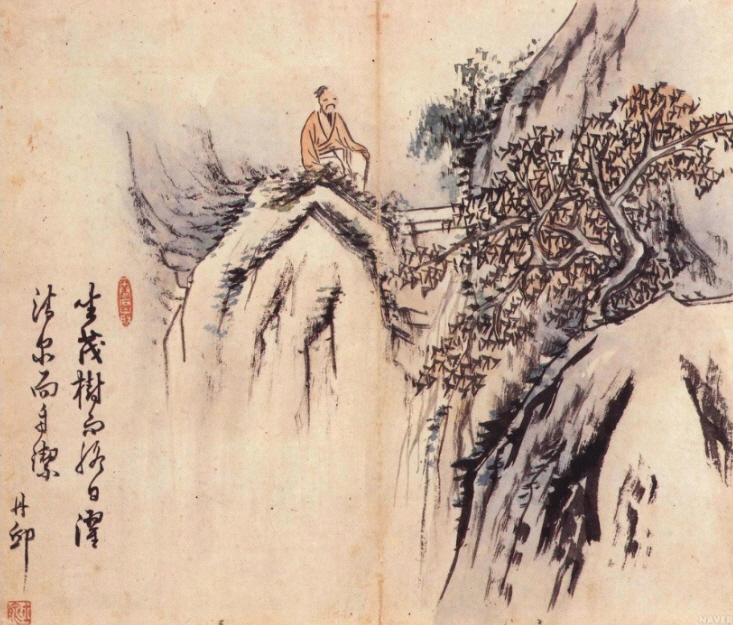 坐茂樹而終日濯
清泉而自潔
丹邱
NAVER